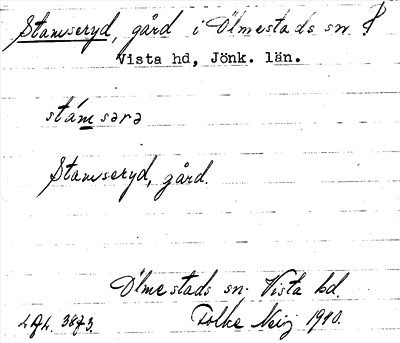 Stamseryd, gård i Ölmestads sn.
Vista hd, Jönk. län.
stámsərə
Stamseryd, gård.
Ölmestads sn. Vista hd.
3873. Folke Neij 1940.